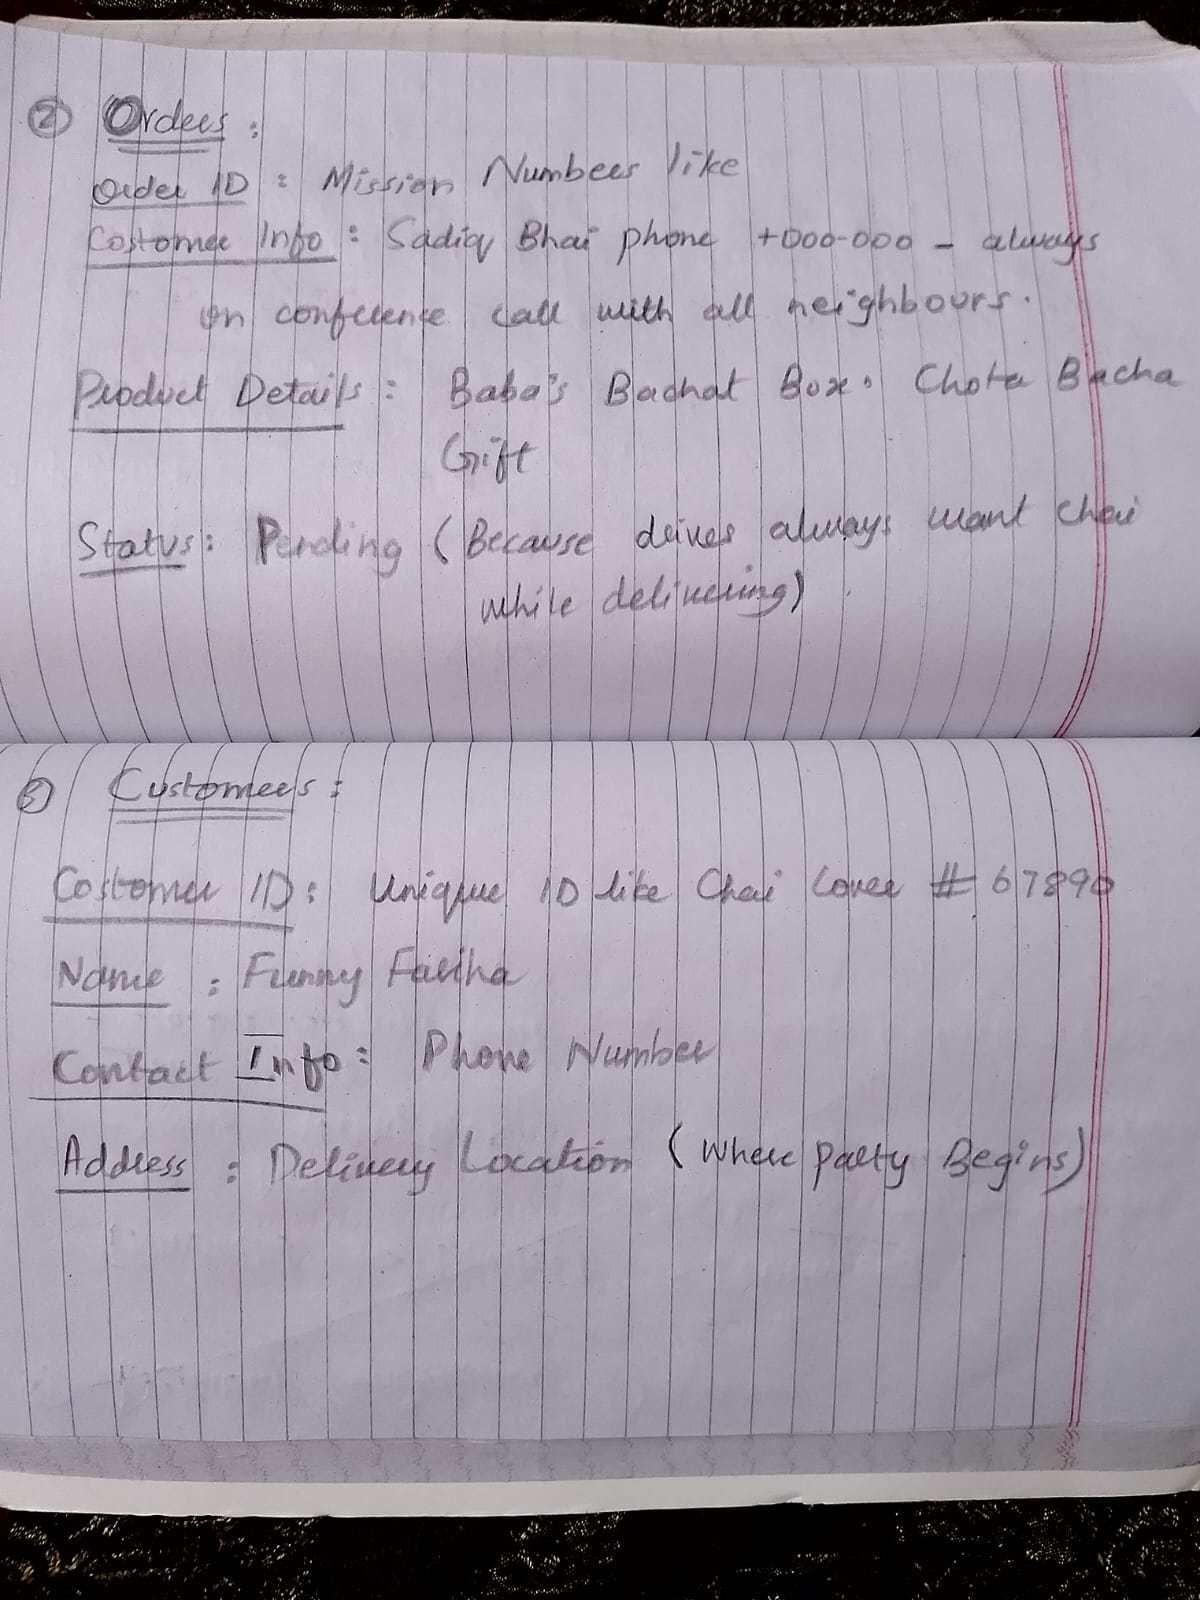 ② Orders :
Order ID : Mission Numbers like
Costomer Info : Sadiq Bhai phone +000-000 - always
on conference call with all neighbours.
Product Details : Baba's Bachat Box: Chota Bacha
Gift
Status: Pending (Because drives always want Chai
while delivering)
③ Customers :
Costomer ID : Unique ID like Chai Lover # 67890
Name : Funny Fariha
Contact Info : Phone Number
Address : Delivery Location (Where Party Begins)